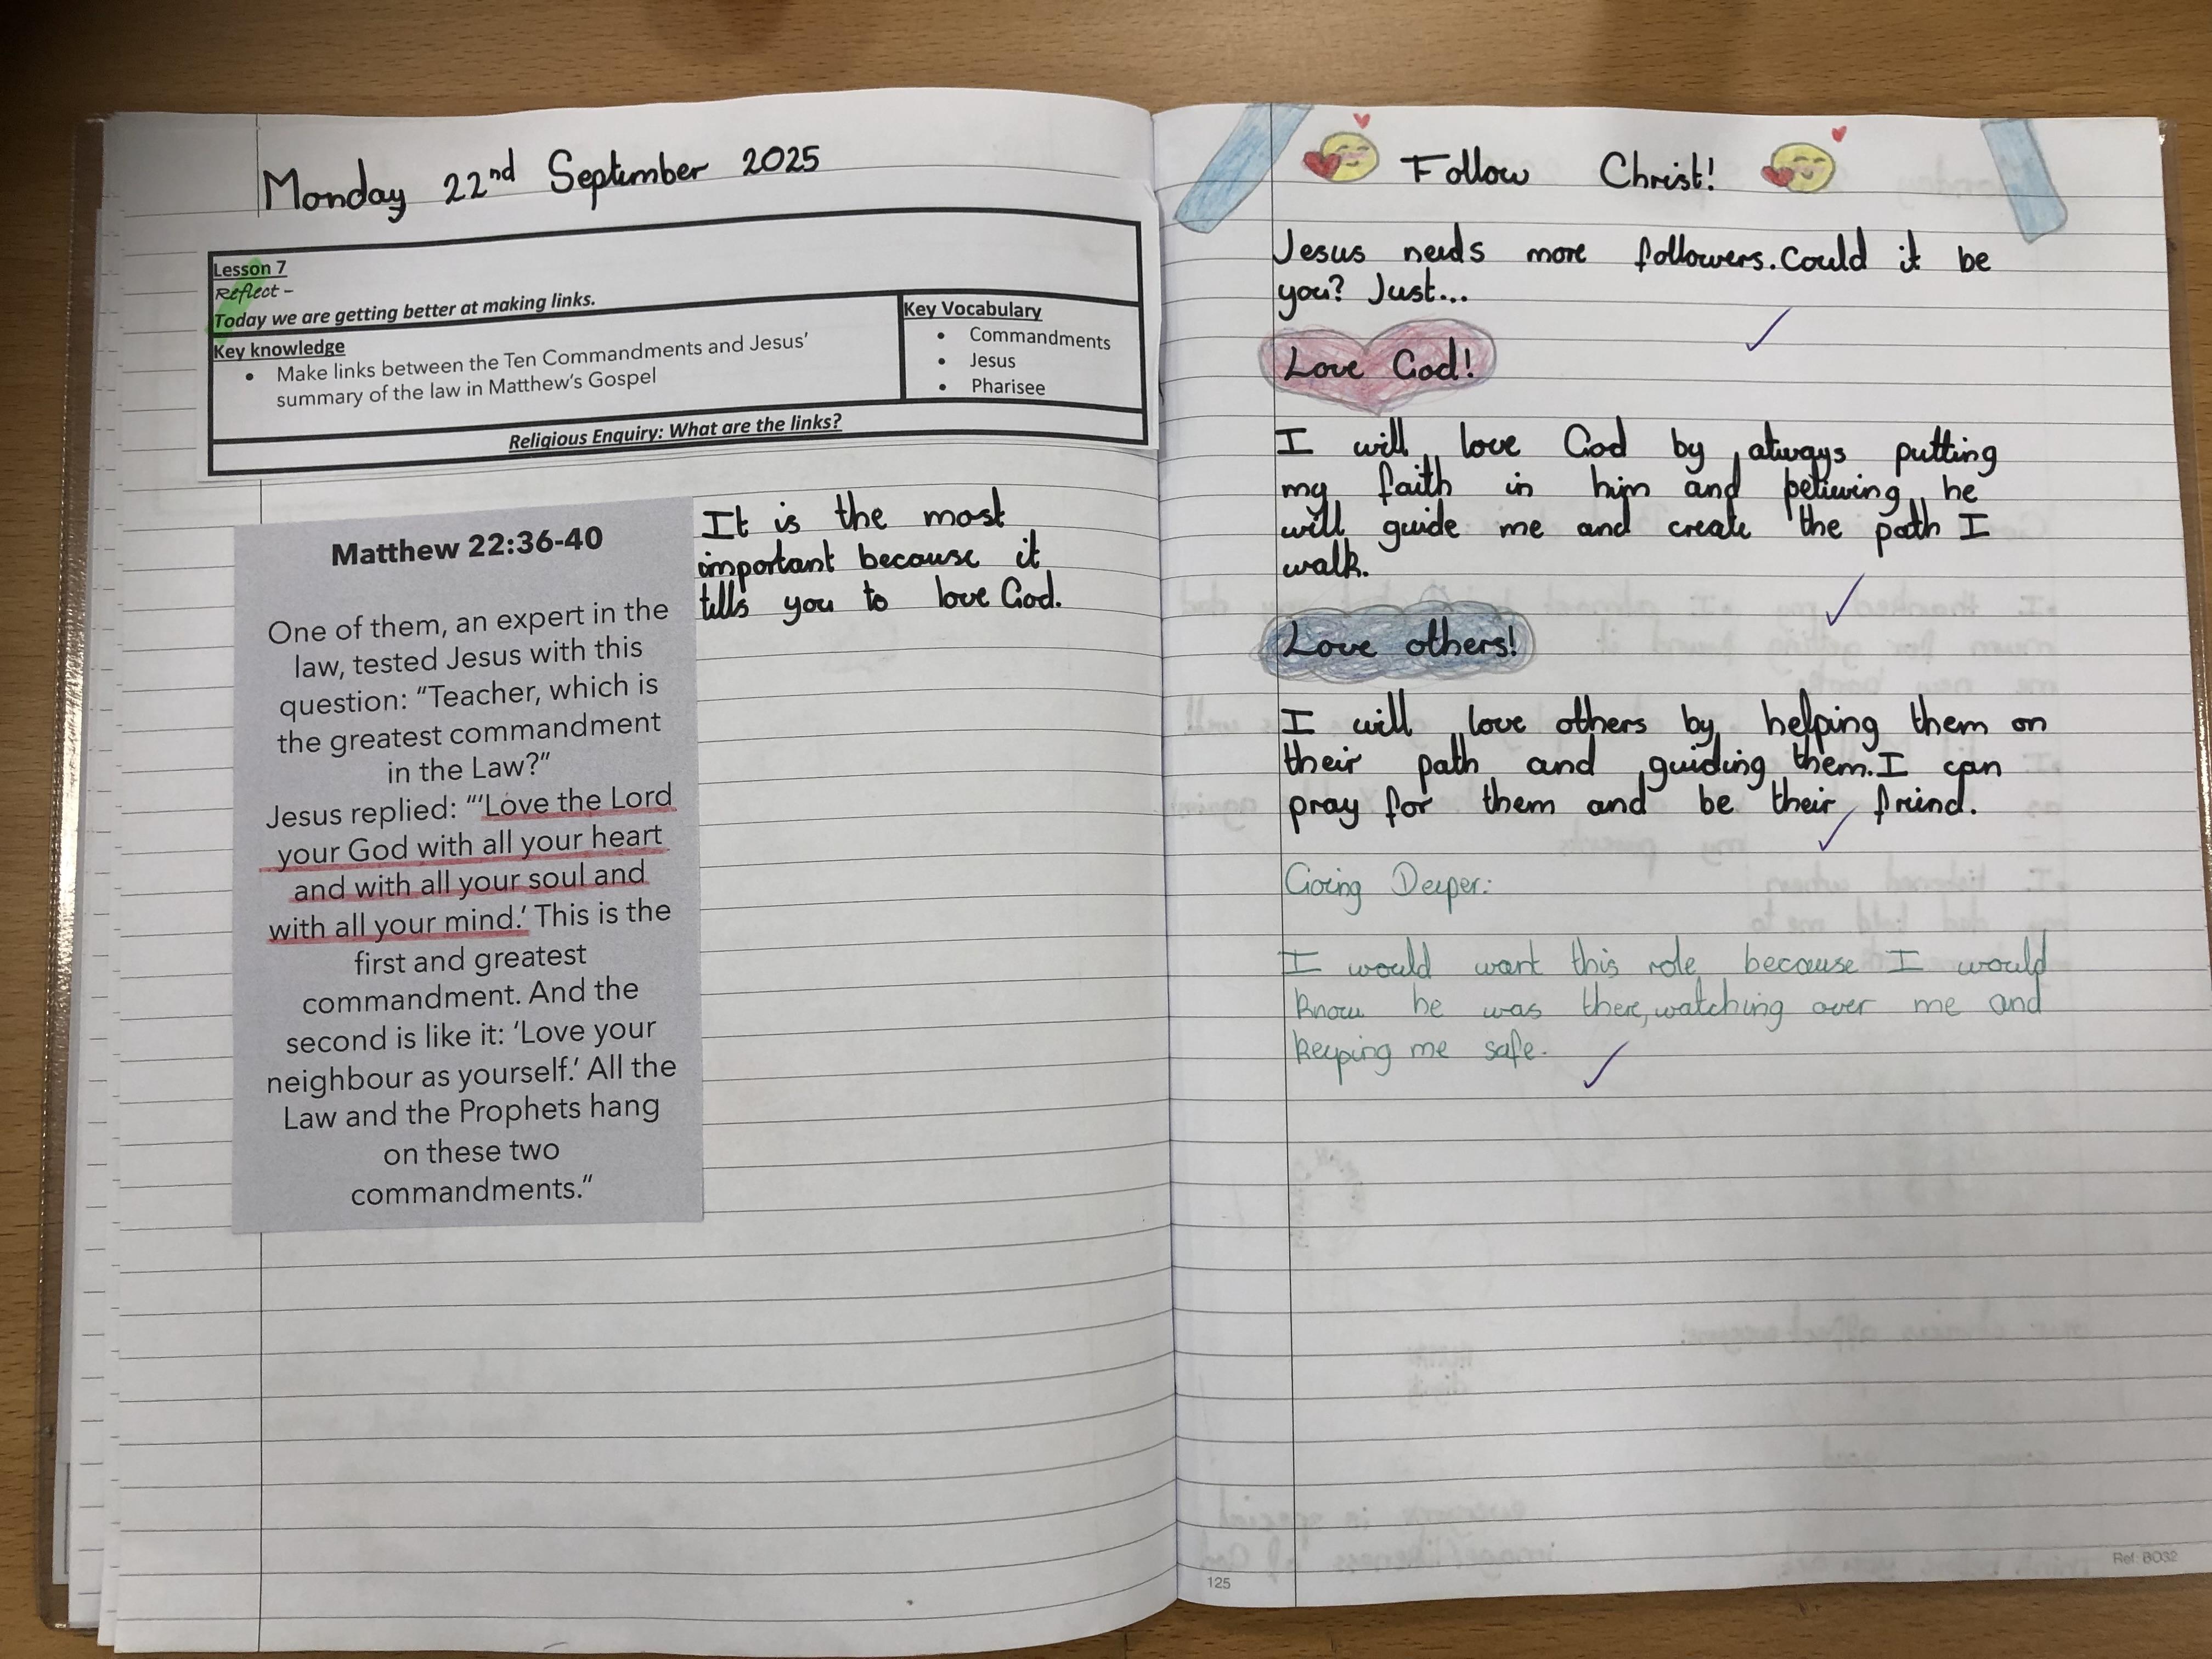 Monday 22nd September 2025
Lesson 7
Reflect -
Today we are getting better at making links.
Key knowledge
• Make links between the Ten Commandments and Jesus'
summary of the law in Matthew's Gospel
Key Vocabulary
• Commandments
• Jesus
• Pharisee
Religious Enquiry: What are the links?
Matthew 22:36-40
One of them, an expert in the
law, tested Jesus with this
question: "Teacher, which is
the greatest commandment
in the Law?"
Jesus replied: "'Love the Lord
your God with all your heart
and with all your soul and
with all your mind.' This is the
first and greatest
commandment. And the
second is like it: 'Love your
neighbour as yourself.' All the
Law and the Prophets hang
on these two
commandments."
It is the most
important because it
tells you to love God.
Follow Christ!
Jesus needs more followers. Could it be
you? Just...
Love God!
I will love God by always putting
my faith in him and beliving he
will guide me and create the path I
walk.
Love others!
I will love others by helping them on
their path and guiding them. I can
pray for them and be their friend.
Going Deeper:
I would want this role because I would
know he was there, watching over me and
keeping me safe.
125
Ref: BO32